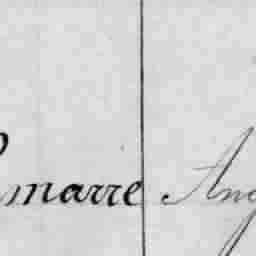 marre Ang